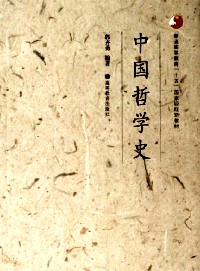 普通高等教育“十一五”国家级规划教材
中国哲学史
郭齐勇 编著
高等教育出版社